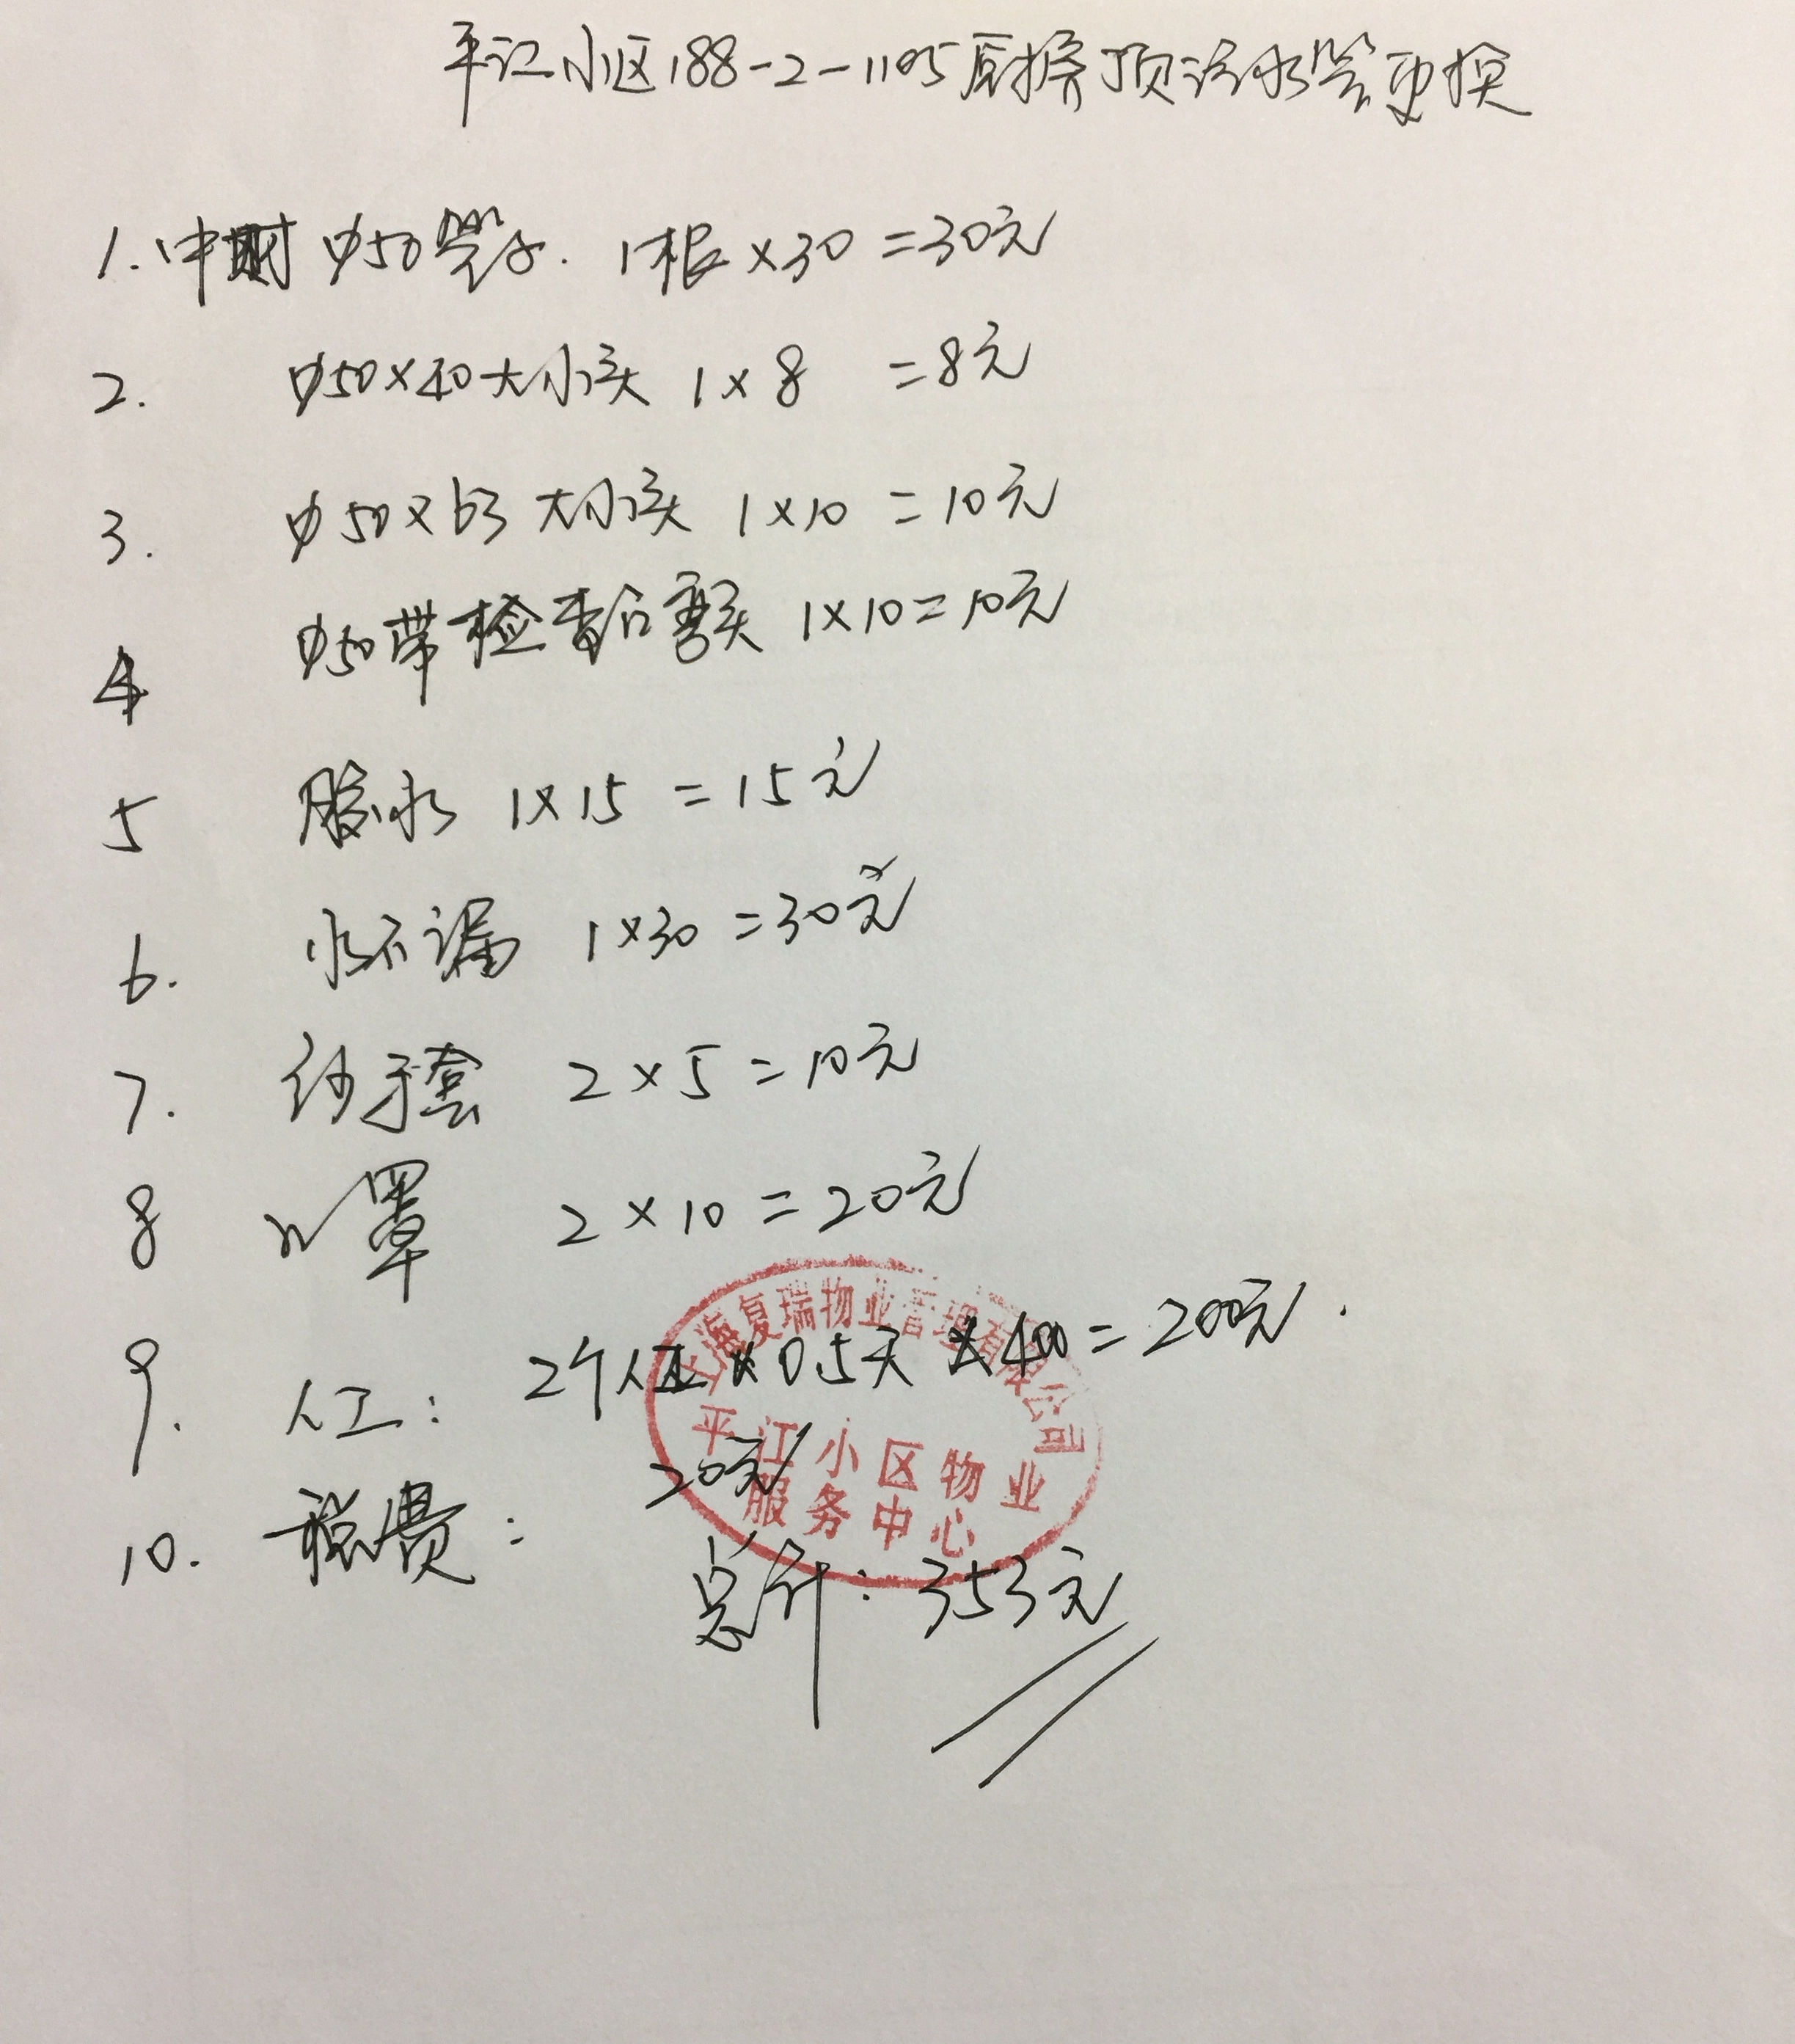 平江小区188-2-1105 顶污水管更换
1. 中财 φ50管子. 1根×30=30元
2. φ50×40大小头 1×8 =8元
3. φ50×63大小头 1×10=10元
4 φ50带检查口弯头 1×10=10元
5 胶水 1×15=15元
6. 水不漏 1×30=30元
7. 纱手套 2×5=10元
8 口罩 2×10=20元
9. 人工: 2个人工×0.5天×400=200元.
10. 税费: 20元
总计: 353元
上海复瑞物业管理有限公司
平江小区物业
服务中心